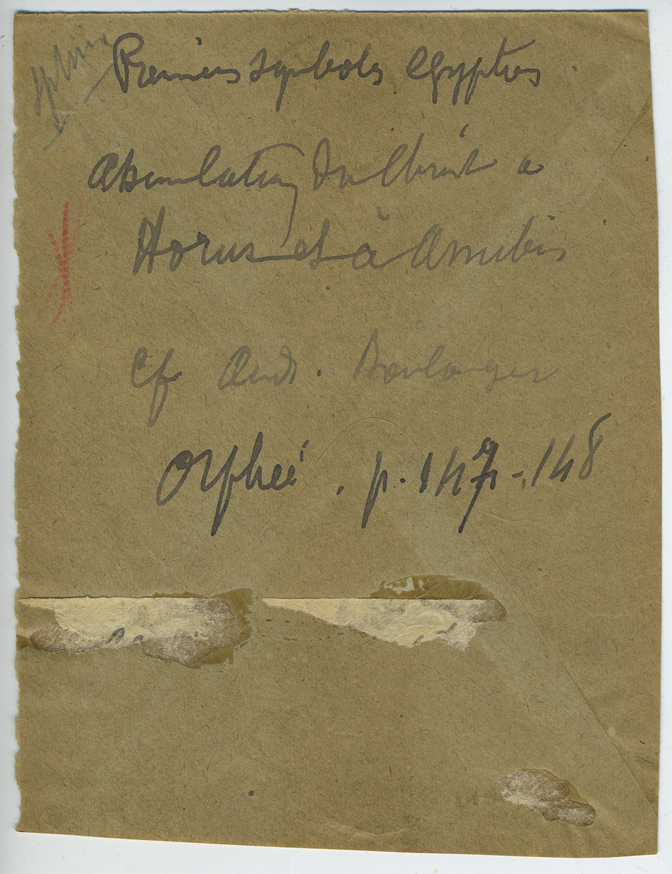 Sphinx
Premiers symboles Egyptiens
Assimilation du Christ a
Horus et à Anubis
Cf And. Boulanger
Orphée . p. 147-148